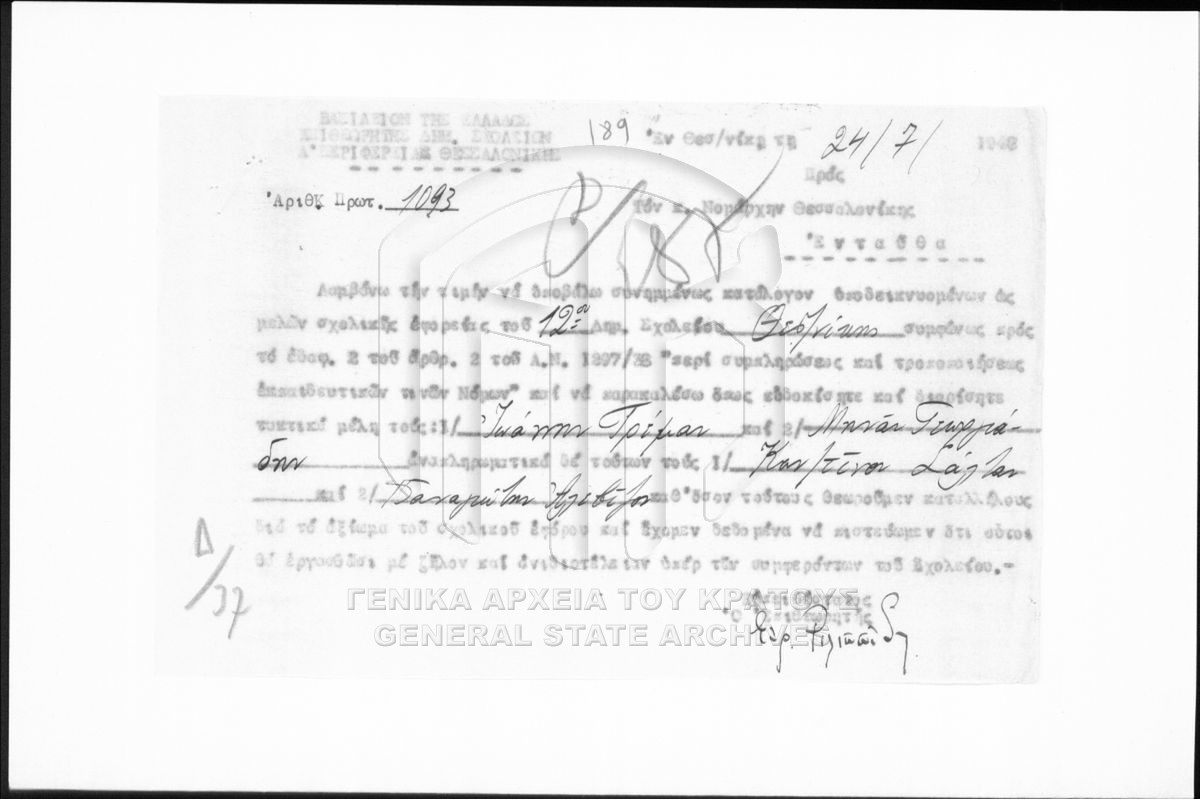 ΒΑΣΙΛΕΙΟΝ ΤΗΣ ΕΛΛΑΔΟΣ
ΕΠΙΘΕΩΡΗΤΗΣ ΔΗΜ. ΣΧΟΛΕΙΩΝ
Α'ΠΕΡΙΦΕΡΕΙΑΣ ΘΕΣΣΑΛΟΝΙΚΗΣ
189
Ἐν Θεσ/νίκῃ τῇ 24/7/ 194
Πρός
Ἀριθ. Πρωτ. 1093
Τόν κ. Νομάρχην Θεσσαλονίκης
Ἐνταῦθα
Λαμβάνω τήν τιμήν νά ὑποβάλω συνημμένως κατάλογον ὑποδεικνυομένων ὡς
μελῶν σχολικῆς ἐφορείας τοῦ 12ου Δημ. Σχολείου Θεσ/νίκης συμφώνως πρός
τό ἐδαφ. 2 τοῦ ἄρθρ. 2 τοῦ Α.Ν. 1297/38 "περί συμπληρώσεως καί τροποποιήσεως
ἐκπαιδευτικῶν τινῶν Νόμων" καί νά παρακαλέσω ὅπως εὐδοκίσητε καί διορίσητε
τακτικά μέλη τούς: 1/ Ἰωάννην Γρίμαν καί 2/ Μηνᾶν Γεωργιά-
δην ἀναπληρωματικά δέ τούτων τούς 1/ Κων/τῖνον
καί 2/ Παναγιώτην Ἀλεβίζον καθ' ὅσον τούτους θεωροῦμεν καταλλήλους
διά τό ἀξίωμα τοῦ σχολικοῦ ἐφόρου καί ἔχομεν δεδομένα νά πιστεύωμεν ὅτι οὗτοι
θά ἐργασθῶσι μέ ζῆλον καί ἀνιδιοτέλειαν ὑπέρ τῶν συμφερόντων τοῦ Σχολείου.-
Δ/37
Εὐπειθέστατος
Ὁ Ἐπιθεωρητής
ΓΕΝΙΚΑ ΑΡΧΕΙΑ ΤΟΥ ΚΡΑΤΟΥΣ
GENERAL STATE ARCHIVES